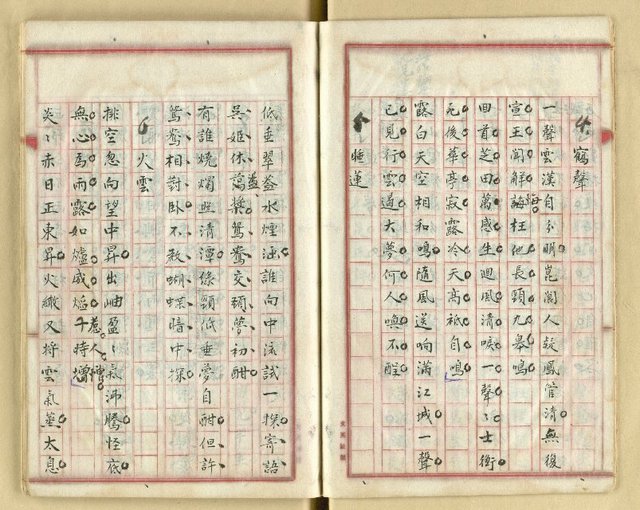 鶴聲
一聲雲漢自分明崑閬人疑鳳管清無後
宣王聞解誨枉他長頸九皋鳴
回首芝田萬感生迴風清唳一聲〻士衡
死後華亭寂露冷天高祗自鳴
露白天空相和鳴隨風送响滿江城一聲
已見行雲遏大夢何人喚不醒
睡蓮
低垂翠蓋水煙涵誰向中流試一探寄語
吳姬休蕩槳鴛鴦交頸夢初酣
有誰燒燭照清潭倦頸低垂夢自酣但許
鴛鴦相對卧不教蝴蝶暗中探
6 火雲
排空忽向望中昇出岫盈〻氣沸騰怪底
無心為雨露如爐咸焰惹人憎
炎〻赤日正東昇火繖又將雲氣蒸太息